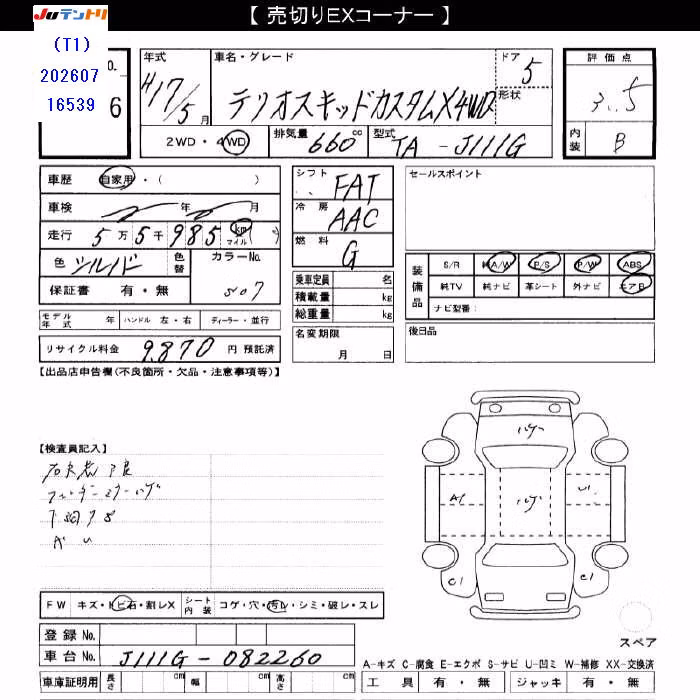 【 売切りEXコーナー 】
JUテントリ
(T1)
202607
16539
No.
6
年式
H17/5月
車名・グレード
テリオスキッドカスタムX4WD
ドア
5
形状
評価点
3.5
2WD・4WD
排気量
660 cc
型式
TA-J111G
内装
B
車歴
自家用・( )
シフト
FAT
セールスポイント
車検
年 月
冷房
AAC
走行
5万5千985 km マイル
燃料
G
色
シルバー
色替
カラーNo.
S07
保証書 有・無
装備品
S/R
純A/W
P/S
P/W
ABS
純TV
純ナビ
革シート
外ナビ
エアB
ナビ型番:
乗車定員 名
積載量 kg
総重量 kg
モデル年式
ハンドル 左・右
ディーラー・並行
名変期限
月 日
後日品
リサイクル料金 9,870 円 預託済
【出品店申告欄(不良箇所・欠品・注意事項等)】
【検査員記入】
ハゲ
ハゲ
A1
U1
C1
C1
スペア
FW キズ・トビ石・割レX
シート内装 コゲ・穴・汚レ・シミ・破レ・スレ
登録No.
車台No. J111G-082260
A-キズ C-腐食 E-エクボ S-サビ U-凹ミ W-補修 XX-交換済
車庫証明用 長さ cm 幅 cm 高さ cm
工具 有・無 ジャッキ 有・無